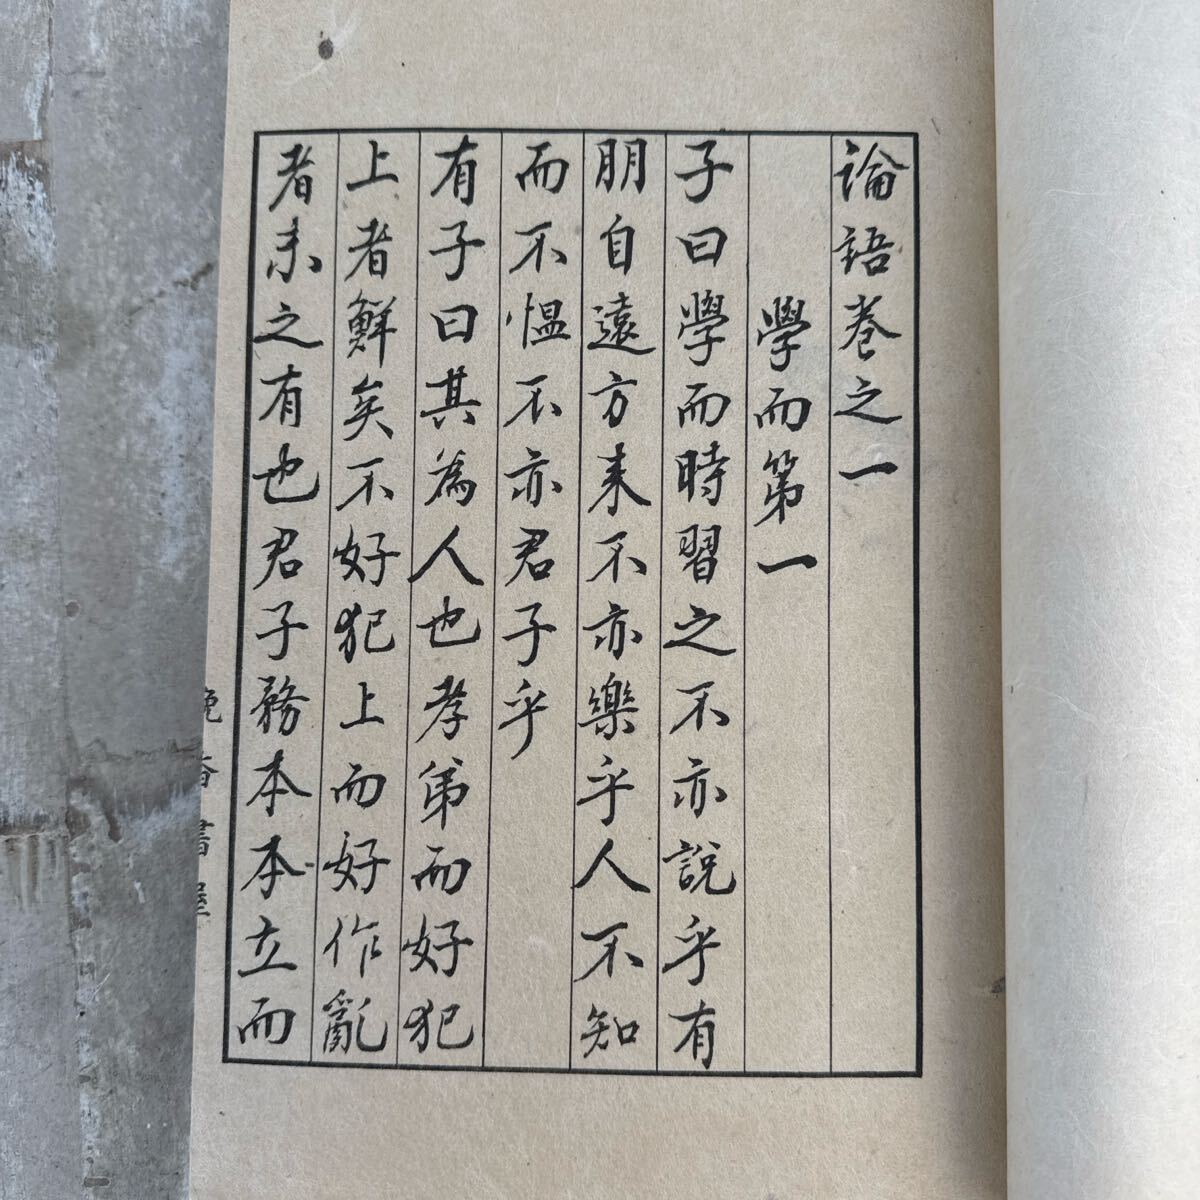 論語卷之一
學而第一
子曰學而時習之不亦說乎有
朋自遠方来不亦樂乎人不知
而不愠不亦君子乎
有子曰其為人也孝弟而好犯
上者鮮矣不好犯上而好作亂
者未之有也君子務本本立而
晚香書屋